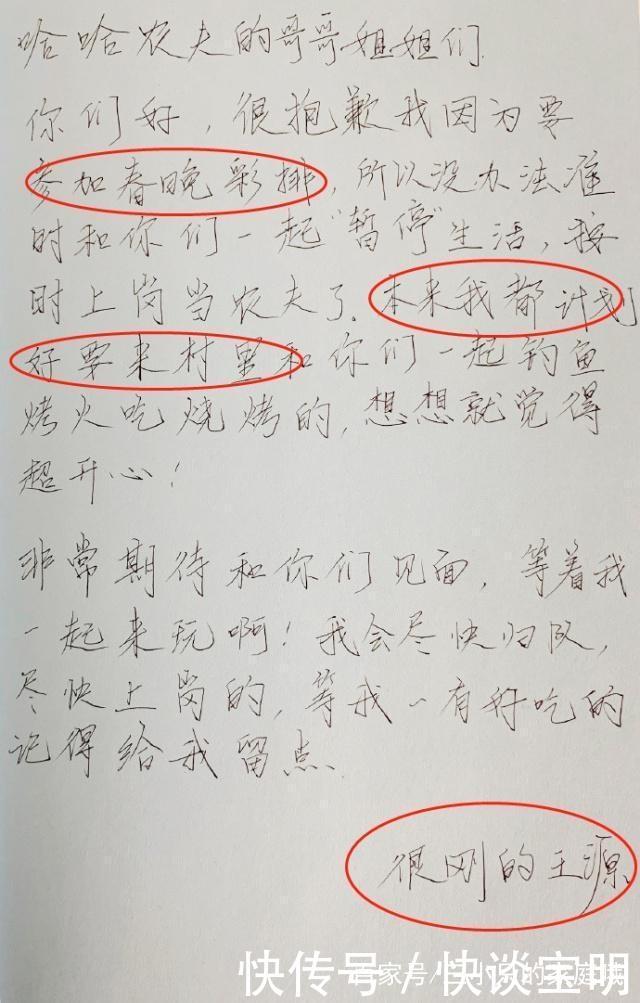 哈哈农夫的哥哥姐姐们
你们好，很抱歉我因为要
参加春晚彩排，所以没办法准
时和你们一起"暂停"生活，按
时上岗当农夫了.本来我都计划
好要来村里和你们一起钓鱼
烤火吃烧烤的,想想就觉得
超开心！
非常期待和你们见面，等着我
一起来玩啊！我会尽快归队,
尽快上岗的,等我一有好吃的
记得给我留点.
很刚的王源
快传号/快谈宝明